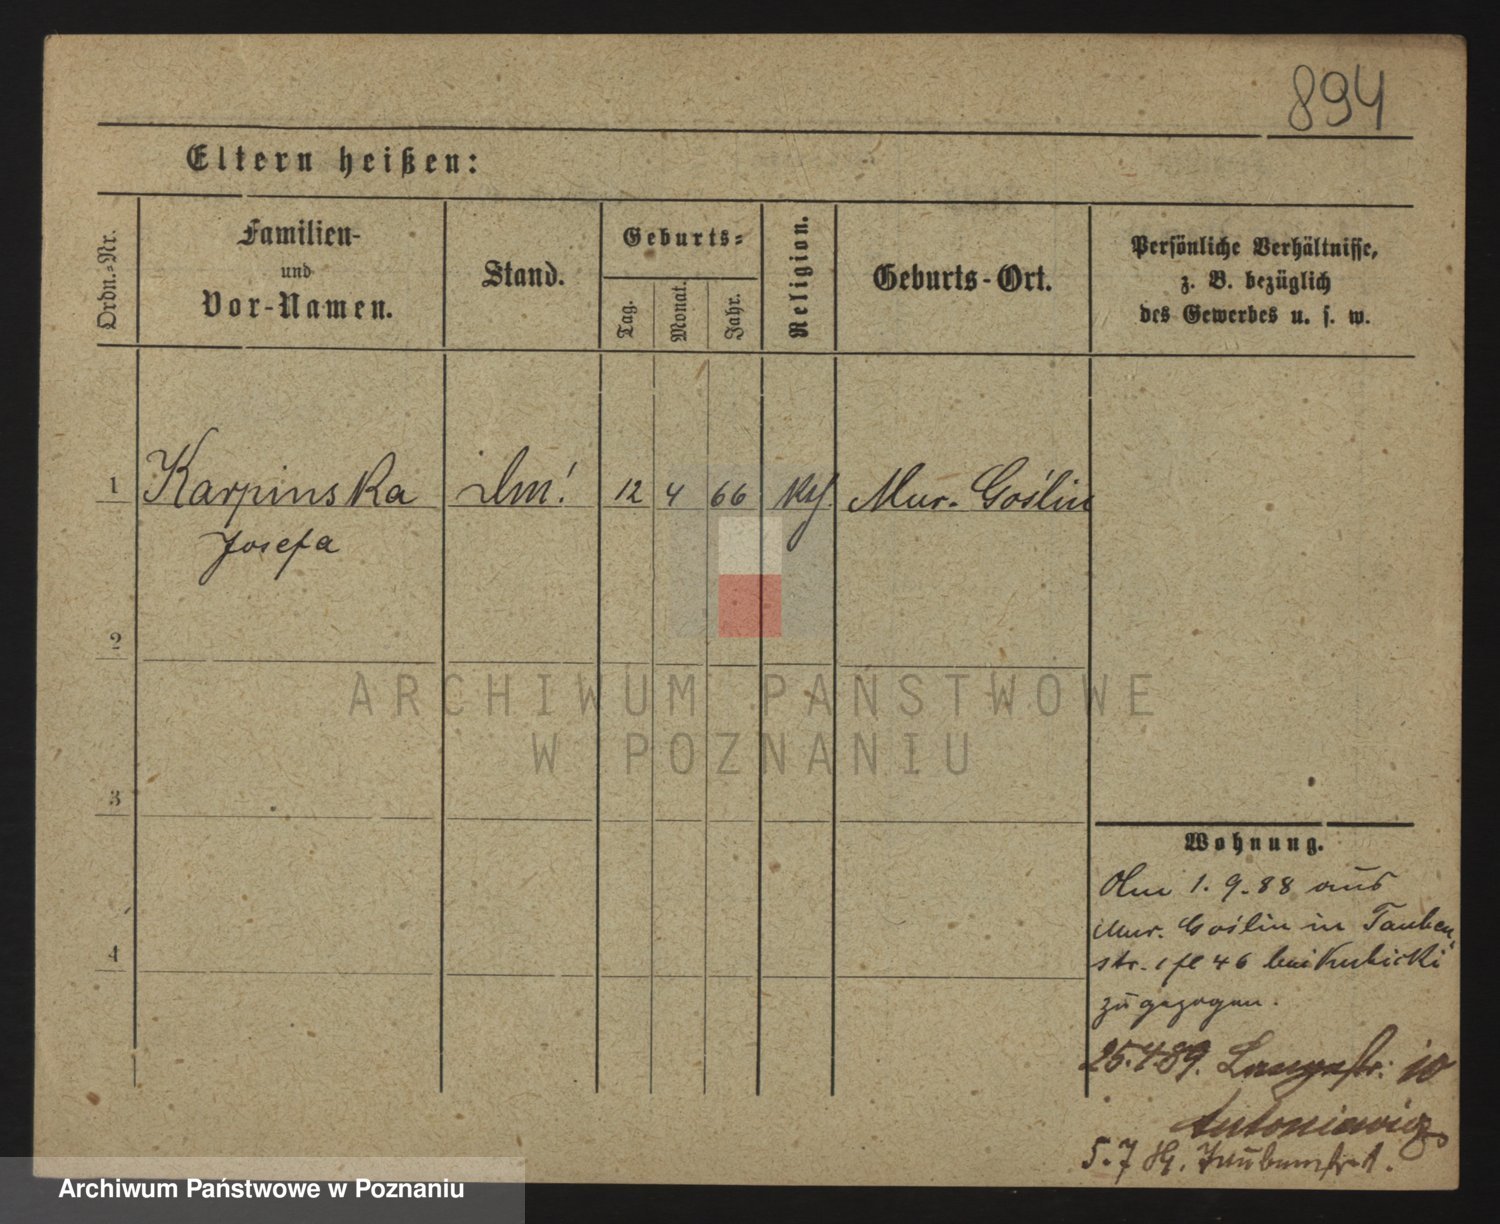 894
Eltern heißen:
Ordn.=Nr.
Familien-
und
Vor-Namen.
Stand.
Geburts=
Tag.
Monat.
Jahr.
Religion.
Geburts-Ort.
Persönliche Verhältnisse,
z. B. bezüglich
des Gewerbes u. s. w.
1 Karpinska 12 4 66 kth. Mur. Goślin
Josefa
2
3
4
ARCHIWUM PAŃSTWOWE
W POZNANIU
Wohnung.
1. 9. 88 aus
Mur. Goślin in Tauben
str. 46 bei Kubicki
zugezogen.
25.4 89. Langestr. 10
Antoniewicz
5. 7 Taubenstr 1.
Archiwum Państwowe w Poznaniu